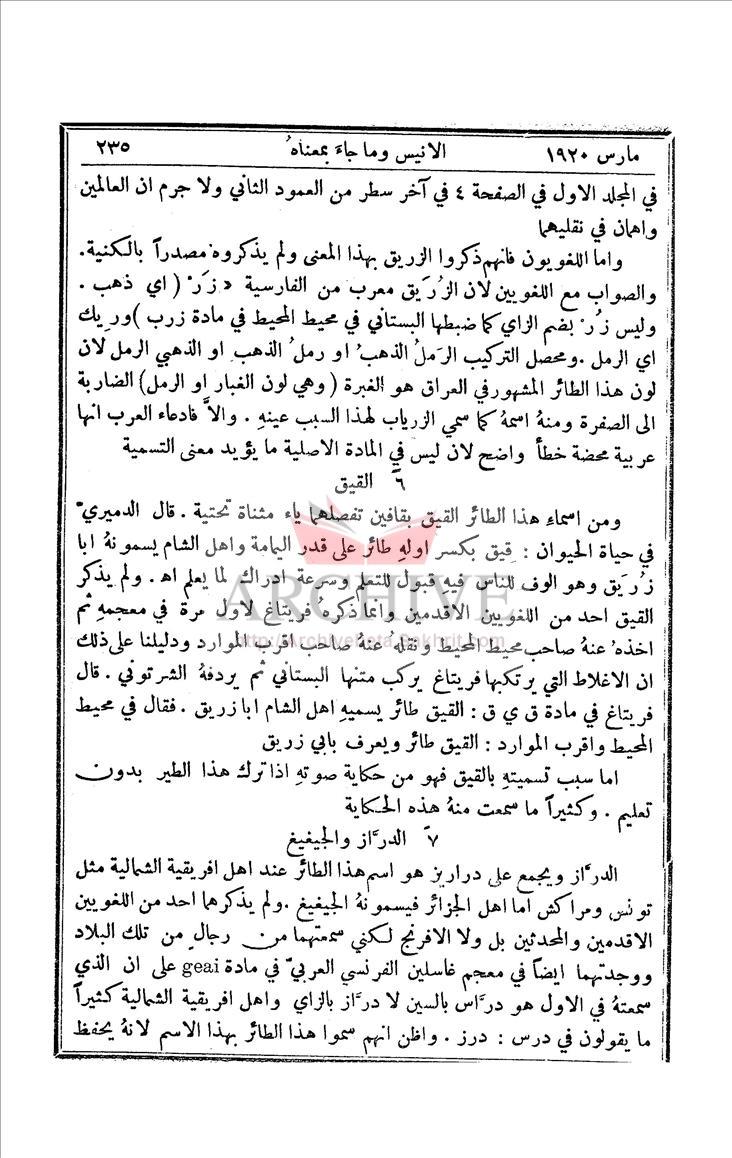 مارس ١٩٢٠ الانيس وما جاءَ بمعناهُ ٢٣٥
في المجلد الاول في الصفحة ٤ في آخر سطر من العمود الثاني ولا جرم ان العالمين
واهمان في نقليهما
واما اللغويون فانهم ذكروا الزريق بهذا المعنى ولم يذكروه مصدراً بالكنية.
والصواب مع اللغويين لان الزُرَيق معرب من الفارسية « زَرْ ( اي ذهب .
وليس زُرْ بضم الزاي كما ضبطها البستاني في محيط المحيط في مادة زرب ) وريك
اي الرمل . ومحصل التركيب الرَملُ الذهبُ او رملُ الذهب او الذهبي الرمل لان
لون هذا الطائر المشهور في العراق هو الغبرة ( وهي لون الغبار او الرمل ) الضاربة
الى الصفرة ومنهُ اسمهُ كما سمي الزرياب لهذا السبب عينهِ . والاَّ فادعاء العرب انها
عربية محضة خطأ واضح لان ليس في المادة الاصلية ما يؤيد معنى التسمية
٦ً القيق
ومن اسماءِ هذا الطائر القيق بقافين تفصلهما ياء مثناة تحتية . قال الدميريّ
في حياة الحيوان : قِيق بكسر اولهِ طائر على قدر اليمامة واهل الشام يسمونهُ ابا
زُرَيق وهو الوف للناس فيه قبول للتعلم وسرعة ادراك لما يعلم اه . ولم يذكر
القيق احد من اللغويين الاقدمين وانما ذكرهُ فريتاغ لاول مرة في معجمهِ ثم
اخذهُ عنهُ صاحب محيط المحيط ونقله عنهُ صاحب اقرب الموارد ودليلنا على ذلك
ARCHIVE
http://Archivebeta.Sakhrit.com
ان الاغلاط التي يرتكبها فريتاغ يركب متنها البستاني ثم يردفهُ الشرتوني . قال
فريتاغ في مادة ق ي ق : القيق طائر يسميهِ اهل الشام ابا زريق . فقال في محيط
المحيط واقرب الموارد : القيق طائر ويعرف بابي زريق
اما سبب تسميتهِ بالقيق فهو من حكاية صوتهِ اذا ترك هذا الطير بدون
تعليم . وكثيراً ما سمعت منهُ هذه الحكاية
٧ً الدرَّاز والجيغيغ
الدرَّاز ويجمع على دراريز هو اسم هذا الطائر عند اهل افريقية الشمالية مثل
تونس ومراكش اما اهل الجزائر فيسمونهُ الجيغيغ . ولم يذكرهما احد من اللغويين
الاقدمين والمحدثين بل ولا الافرنج لكني سمعتهما من رجالٍ من تلك البلاد
ووجدتهما ايضاً في معجم غاسلين الفرنسي العربيّ في مادة geai على ان الذي
سمعتهُ في الاول هو درَّاس بالسين لا درَّاز بالزاي واهل افريقية الشمالية كثيراً
ما يقولون في درس : درز . واظن انهم سموا هذا الطائر بهذا الاسم لانهُ يحفظ